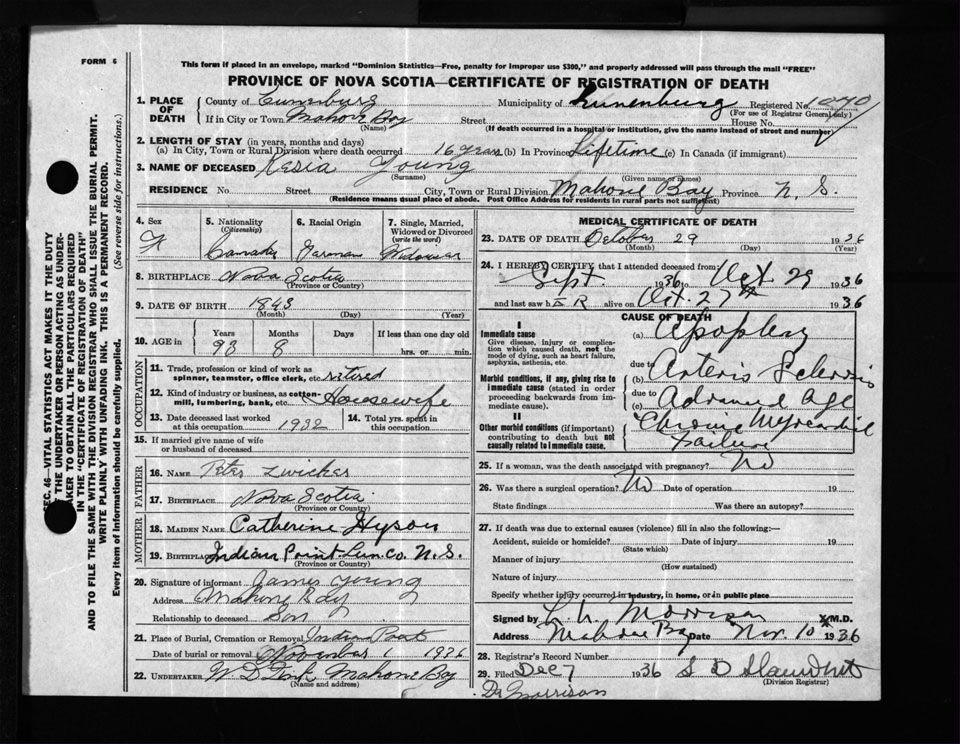 FORM 6
This form if placed in an envelope, marked "Dominion Statistics—Free, penalty for improper use $300," and properly addressed will pass through the mail "FREE"
PROVINCE OF NOVA SCOTIA—CERTIFICATE OF REGISTRATION OF DEATH
1. PLACE OF DEATH County of Lunenburg Municipality of Lunenburg Registered No. 1090
(For use of Registrar General only)
If in City or Town Mahone Bay Street House No.
(Name) (If death occurred in a hospital or institution, give the name instead of street and number)
2. LENGTH OF STAY (in years, months and days)
(a) In City, Town or Rural Division where death occurred 16 years (b) In Province Lifetime (c) In Canada (if immigrant)
3. NAME OF DECEASED Kesia Young
(Surname) (Given name or names)
RESIDENCE No. Street City, Town or Rural Division Mahone Bay Province N. S.
(Residence means usual place of abode. Post Office Address for residents in rural parts not sufficient)
4. Sex F
5. Nationality (Citizenship) Canada
6. Racial Origin German
7. Single, Married, Widowed or Divorced (write the word) Widower
8. BIRTHPLACE Nova Scotia
(Province or Country)
9. DATE OF BIRTH 1843
(Month) (Day) (Year)
10. AGE in Years Months Days If less than one day old
93 8 hrs. or min.
OCCUPATION
11. Trade, profession or kind of work as spinner, teamster, office clerk, etc. retired
12. Kind of industry or business, as cotton-mill, lumbering, bank, etc. Housewife
13. Date deceased last worked at this occupation 1932
14. Total yrs. spent in this occupation
15. If married give name of wife or husband of deceased
FATHER
16. NAME Peter Zwicker
17. BIRTHPLACE Nova Scotia
(Province or Country)
MOTHER
18. MAIDEN NAME Catherine Hyson
19. BIRTHPLACE Indian Point Lun. Co. N. S.
(Province or Country)
20. Signature of informant James Young
Address Mahone Bay
Relationship to deceased Son
21. Place of Burial, Cremation or Removal Indian Point
Date of burial or removal November 1 1936
22. UNDERTAKER W. D. Mahone Bay
(Name and address)
MEDICAL CERTIFICATE OF DEATH
23. DATE OF DEATH October 29 1936
(Month) (Day) (Year)
24. I HEREBY CERTIFY that I attended deceased from
Sept. 1936 to Oct. 29 1936
and last saw h E R alive on Oct. 27th 1936
CAUSE OF DEATH
I
Immediate cause
Give disease, injury or complication which caused death, not the mode of dying, such as heart failure, asphyxia, asthenia, etc.
(a) Apoplexy
due to
Morbid conditions, if any, giving rise to immediate cause (stated in order proceeding backwards from immediate cause).
(b) Arterio Sclerosis
due to
(c) Advanced age
II
Other morbid conditions (if important) contributing to death but not causally related to immediate cause.
Chronic Myocardial Failure
25. If a woman, was the death associated with pregnancy? No
26. Was there a surgical operation? No Date of operation 19
State findings Was there an autopsy?
27. If death was due to external causes (violence) fill in also the following:—
Accident, suicide or homicide? Date of injury 19
(State which)
Manner of injury
(How sustained)
Nature of injury
Specify whether injury occurred in industry, in home, or in public place
Signed by Morrison M.D.
Address Mahone Bay Date Nov. 10 1936
28. Registrar's Record Number
29. Filed Dec 7 1936 S D
(Division Registrar)
Dr Morrison
SEC. 46—VITAL STATISTICS ACT MAKES IT THE DUTY
OF THE UNDERTAKER OR PERSON ACTING AS UNDERTAKER TO OBTAIN ALL THE PARTICULARS REQUIRED
IN THE "CERTIFICATE OF REGISTRATION OF DEATH"
AND TO FILE THE SAME WITH THE DIVISION REGISTRAR WHO SHALL ISSUE THE BURIAL PERMIT.
WRITE PLAINLY WITH UNFADING INK. THIS IS A PERMANENT RECORD.
Every item of information should be carefully supplied. (See reverse side for instructions.)